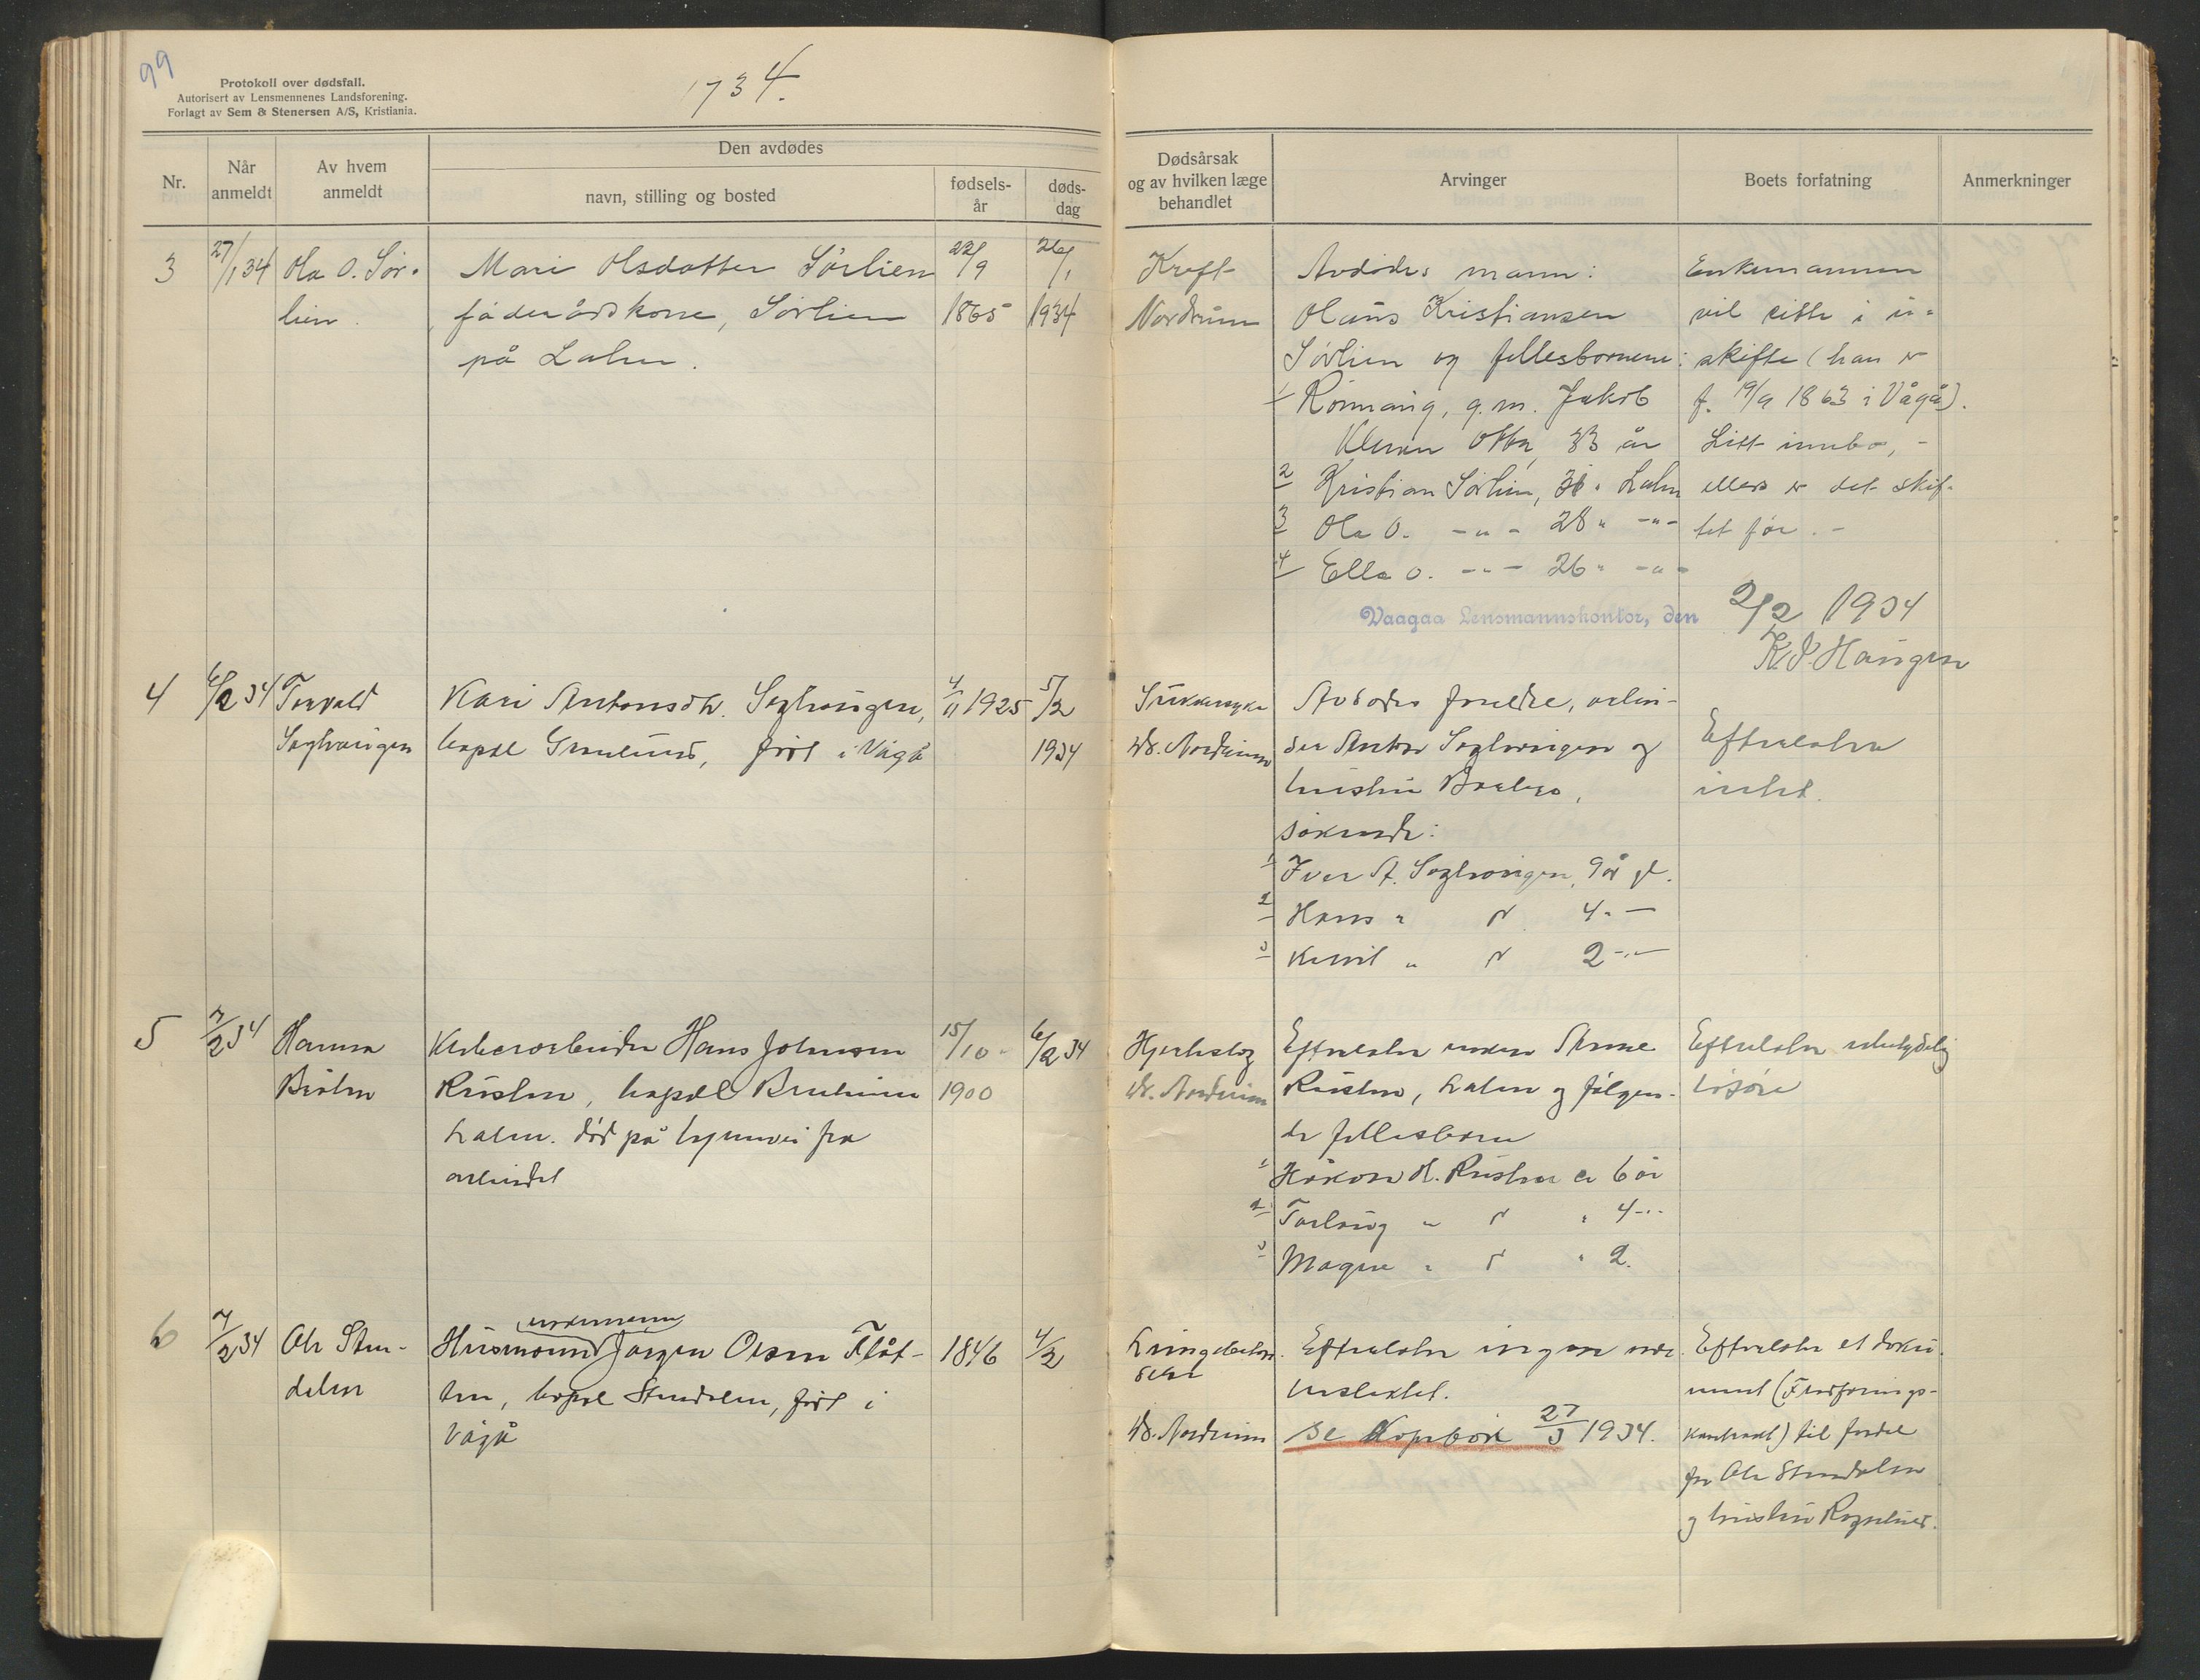 99
Protokoll over dødsfall.
Autorisert av Lensmennenes Landsforening.
Forlagt av Sem & Stenersen A/S, Kristiania.
1934.
Nr.
Når anmeldt
Av hvem anmeldt
Den avdødes
navn, stilling og bosted
fødsels-år
døds-dag
Dødsårsak
og av hvilken læge
behandlet
Arvinger
Boets forfatning
Anmerkninger
3
27/1 34
Ola O. Sør-
lien.
Mari Olsdatter Sörlien
föderådskone, Sörlien
på Lalm.
22/9
1865
26/1
1934
Kreft
Nordrum
Avdödes mann:
Olaus Kristiansen
Sörlien og fellesbornene:
1 Rönnaug, g.m. Jakob
Otta, 33 år
2 Kristian Sörlien, 31 " Lalm
3 Ola O. -"- 28 " -"-
4 Ella O. -"- 26 " -"-
Enkemannen
vil sitte i u-
skifte (han er
f. 19/9 1863 i Vågå).
Litt innbo, -
ellers er det skif-
tet før. -
Vaagaa Lensmannskontor, den 2/2 1934
K. Haugen
4
6/2 34
Torvald
Søghaugen
Kari Antonsdtr. Søghaugen,
bopæl Grønlund, født i Vågå
4/11 1925
5/2
1934
Sukkersyke
Dr. Nordrum
Avdødes foreldre, arbei-
der Anton Søghaugen og
hustru
søskende:
1 Iver A. Søghaugen, 9 år gl.
2 Hans " " 4 " -
3 " " 2 -"-
Efterlater
intet.
5
7/2 34
Hanna
Kleberarbeider Hans Johnsen
Rusten, bopæl
Lalm. død på hjemvei fra
arbeidet
15/10
1900
6/2 34
Hjerteslag
Dr. Nordrum
Efterlater enken Anne
Rusten, Lalm og følgen-
de fellesbarn
1 Håkon H. Rusten ca 6 år
2 Torlaug " " " 4 -"-
3 Magne " " " 2.
Efterlater ubetydelig
løsøre
6
7/2 34
Ole Sten-
dalen
enkemann
Husmann Jørgen Olsen Flåt-
ten, bopæl Stendalen, født i
Vågå
1846
4/2
Lungebeten-
delse
Dr. Nordrum
Efterlater ingen nær-
beslektet.
Se Kopibok 27/3 1934.
Efterlater et doku-
ment (Fredførings-
kontrakt) til fordel
for Ole Stendalen
og hustru Ragnhild.